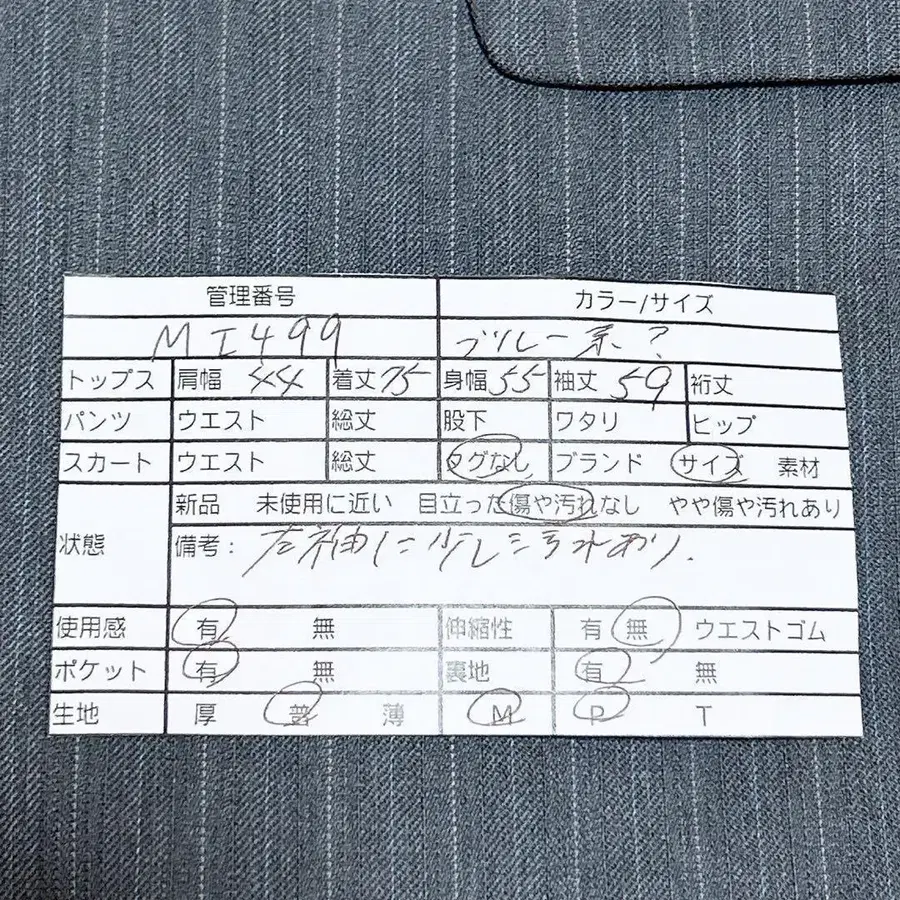 管理番号 カラー/サイズ
MI499 ブルー系?
トップス 肩幅 44 着丈 75 身幅 55 袖丈 59 裄丈
パンツ ウエスト 総丈 股下 ワタリ ヒップ
スカート ウエスト 総丈 タグなし ブランド サイズ 素材
新品 未使用に近い 目立った傷や汚れなし やや傷や汚れあり
状態 備考: 左袖に少し汚れあり.
使用感 有 無 伸縮性 有 無 ウエストゴム
ポケット 有 無 裏地 有 無
生地 厚 普 薄 M P T